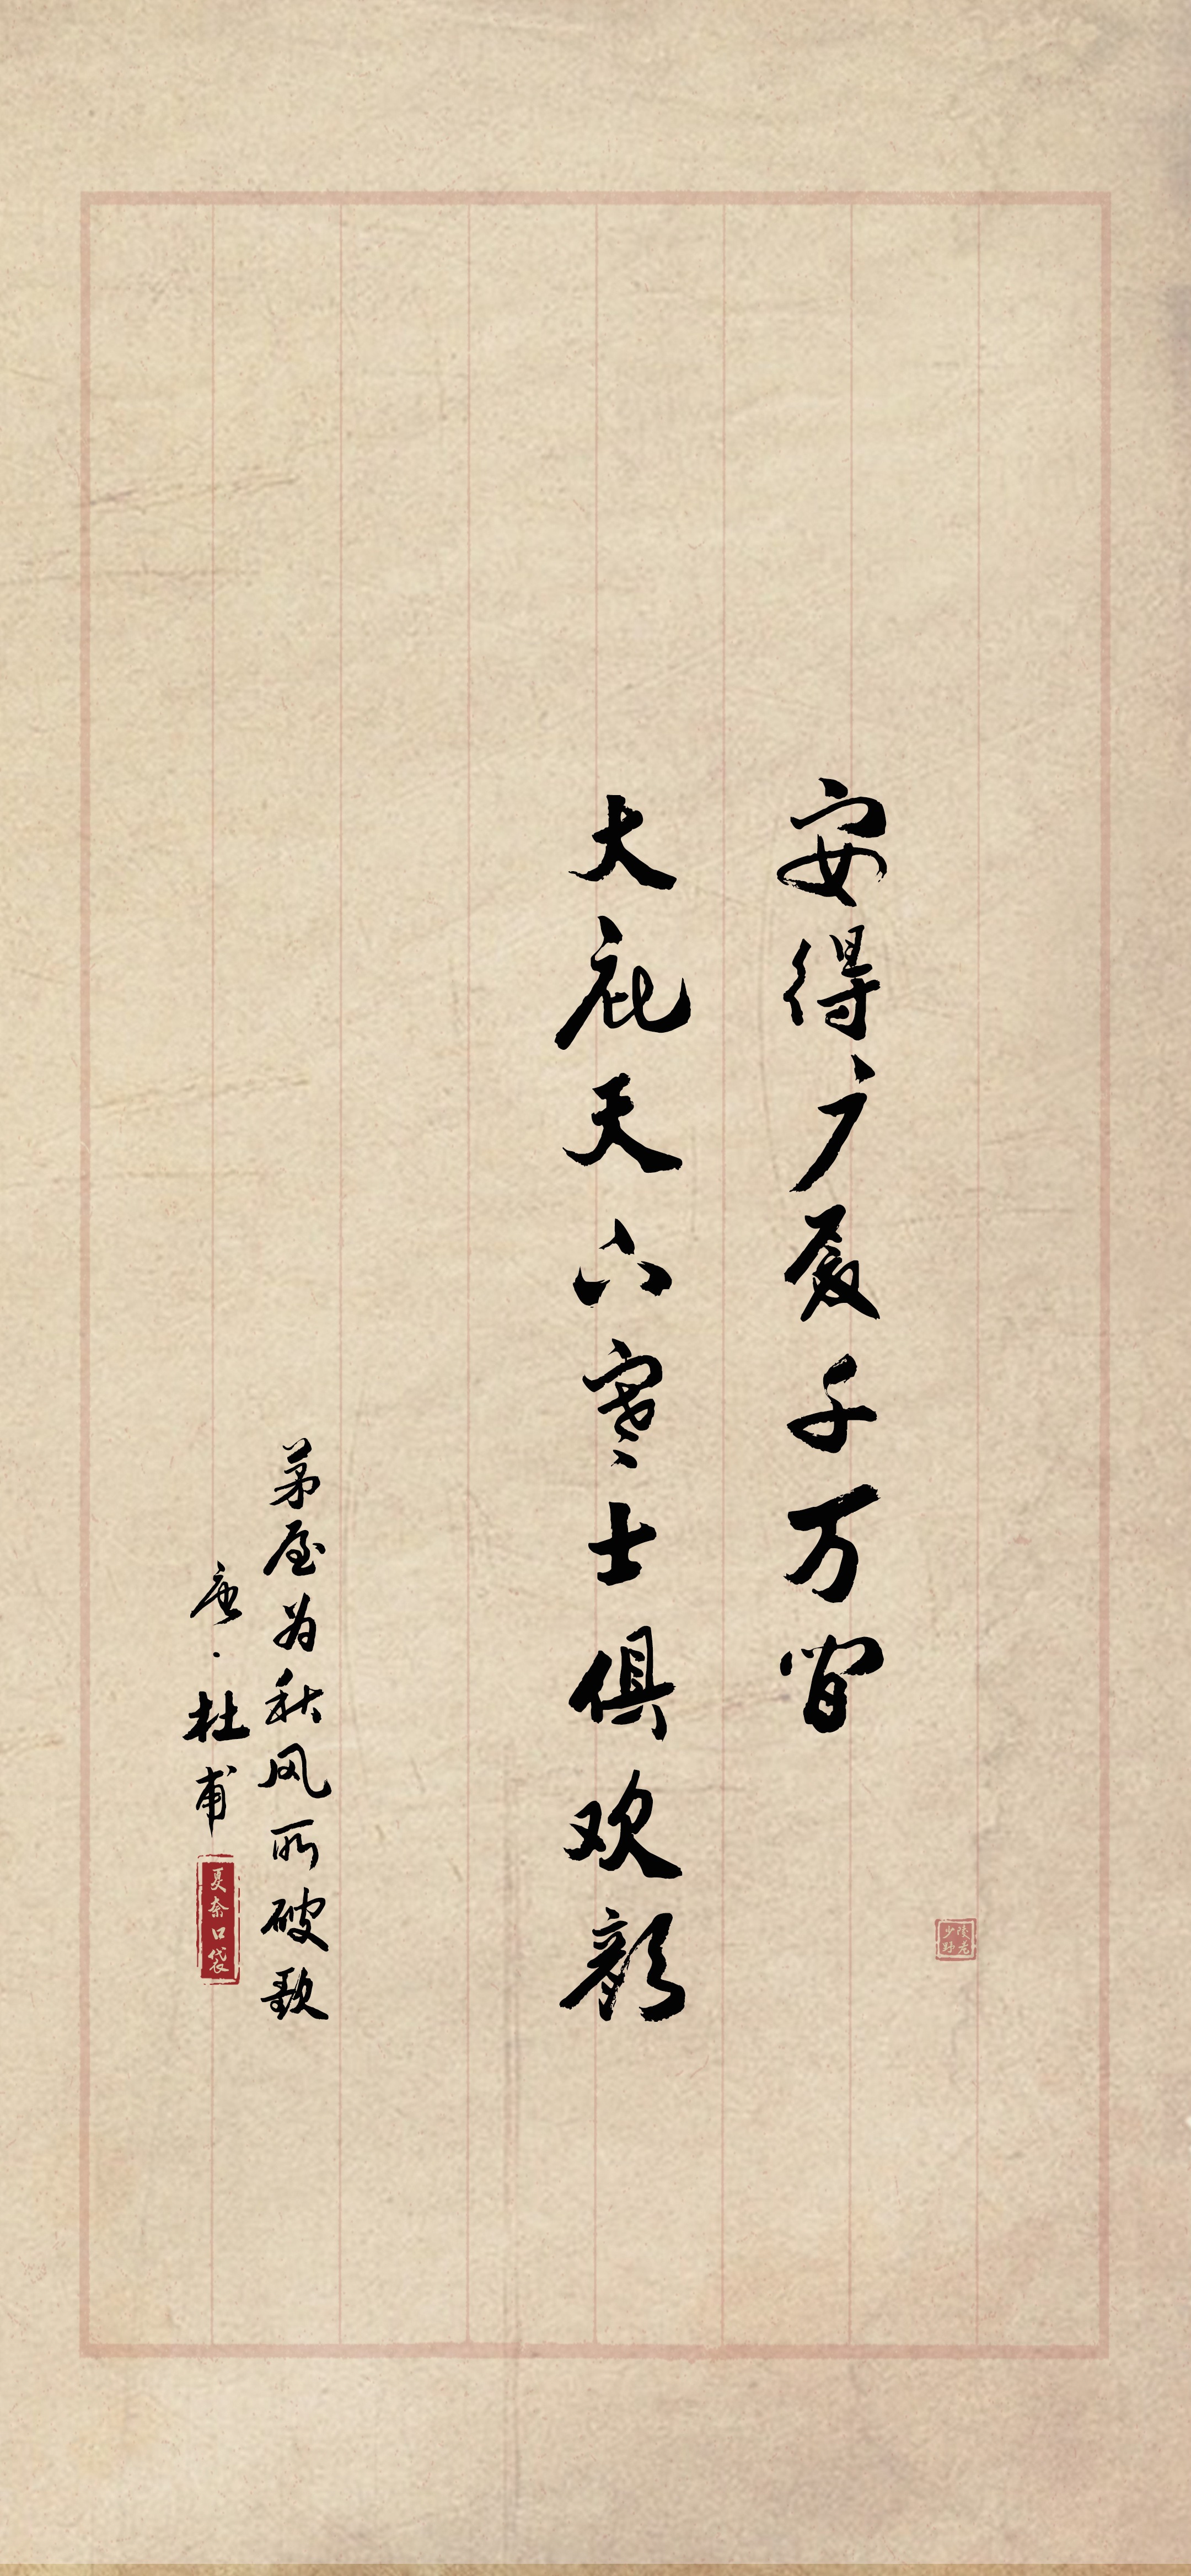 安得广厦千万间
大庇天下寒士俱欢颜
茅屋为秋风所破歌
唐·杜甫
夏奈口袋